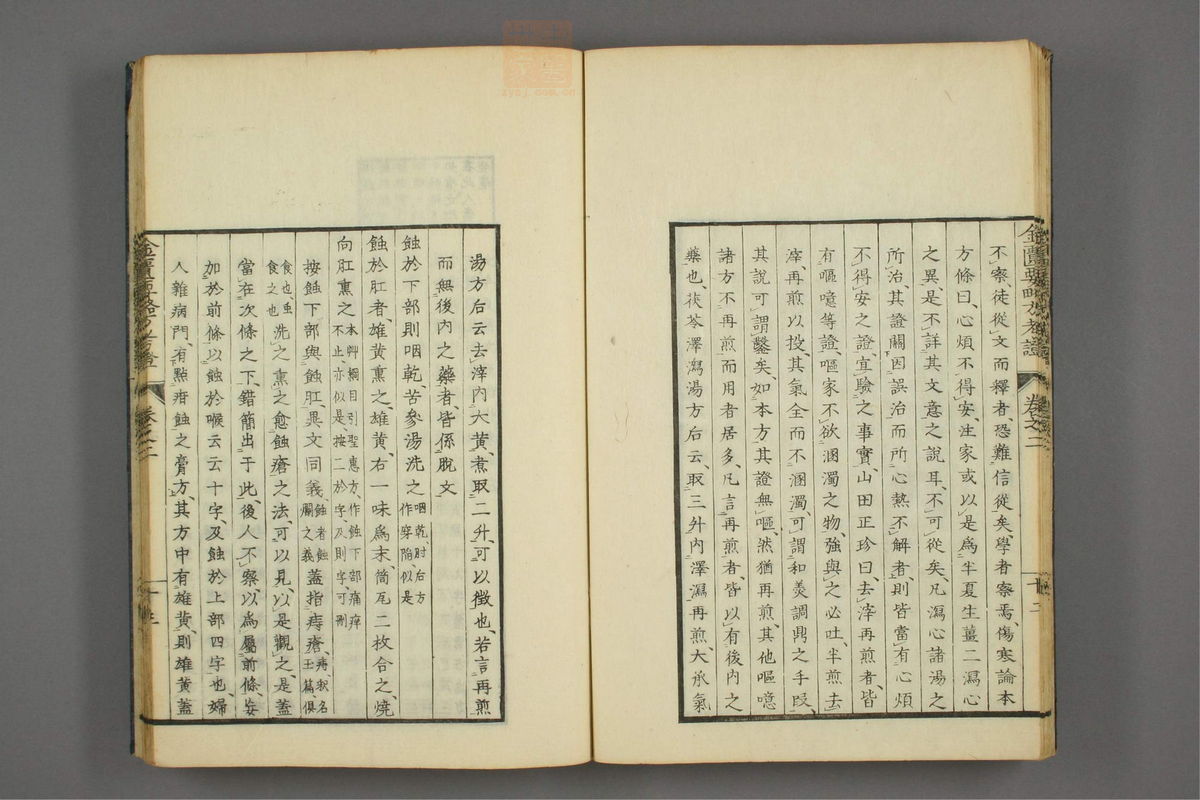 不察、徒從文而釋者、恐難信從矣、學者察焉、傷寒論本
方條曰、心煩不得安、注家或以是爲半夏生薑二瀉心
之異、是不詳其文意之說耳、不可從矣、凡瀉心諸湯之
所治、其證關因誤治而所心熱不解者、則皆當有心煩
不得安之證、宜驗之事實、山田正珍曰、去滓再煎者、皆
有嘔噫等證、嘔家不欲溷濁之物、強與之必吐、半煎去
滓、再煎以投、其氣全而不溷濁、可謂和羹調鼎之手段、
其說可謂鑿矣、如本方其證無嘔、然猶再煎、其他嘔噫
諸方不再煎而用者居多、凡言再煎者、皆以有後內之
藥也、茯苓澤瀉湯方后云、取三升內澤瀉再煎、大承氣
卷之二
十二
湯方后云去滓內大黃、煮取二升、可以徵也、若言再煎
而無後內之藥者、皆係脫文
蝕於下部則咽乾、苦參湯洗之 咽乾、肘后方作穿陷似是
蝕於肛者、雄黃熏之、雄黃、右一味爲末、筒瓦二枚合之、燒
向肛熏之 本艸綱目引聖惠方、作蝕下部痛痒不止、亦似是、按二於字、及則字可刪
按蝕下部與蝕肛、異文同義、蝕者蝕爛之義 蓋指痔瘡、
食也、虫食之也 洗之熏之愈蝕瘡之法、可以見、以是觀之、是蓋
當在次條之下、錯簡出于此、後人不察、以爲屬前條、妄
加於前條、以蝕於喉云云十字、及蝕於上部四字也、婦
人雜病門、有點疳蝕之膏方、其方中有雄黃、則雄黃蓋
卷之二
十三